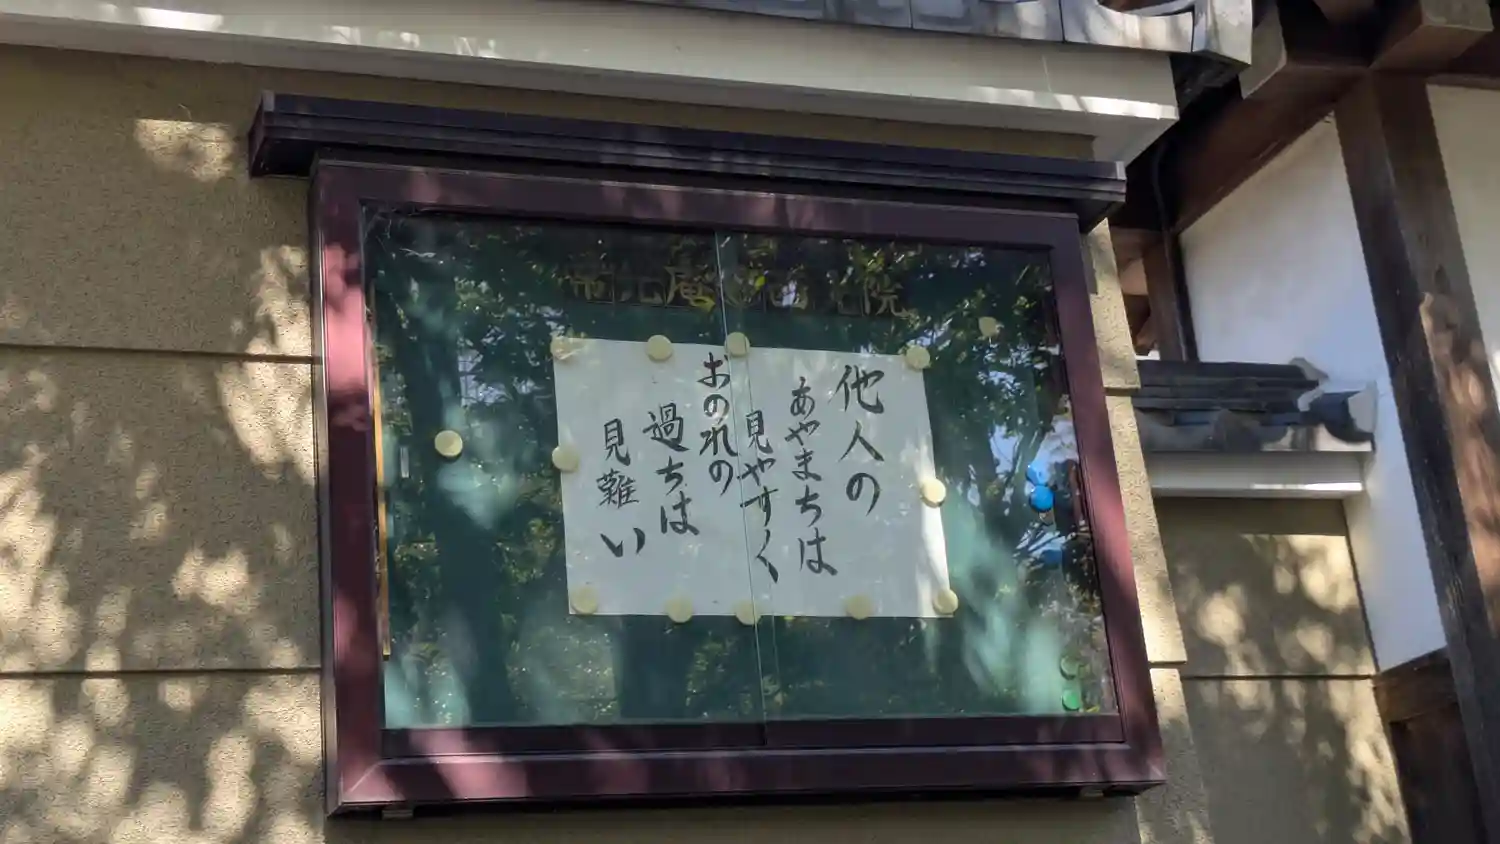 他人の
あやまちは
見やすく
おのれの
過ちは
見難い